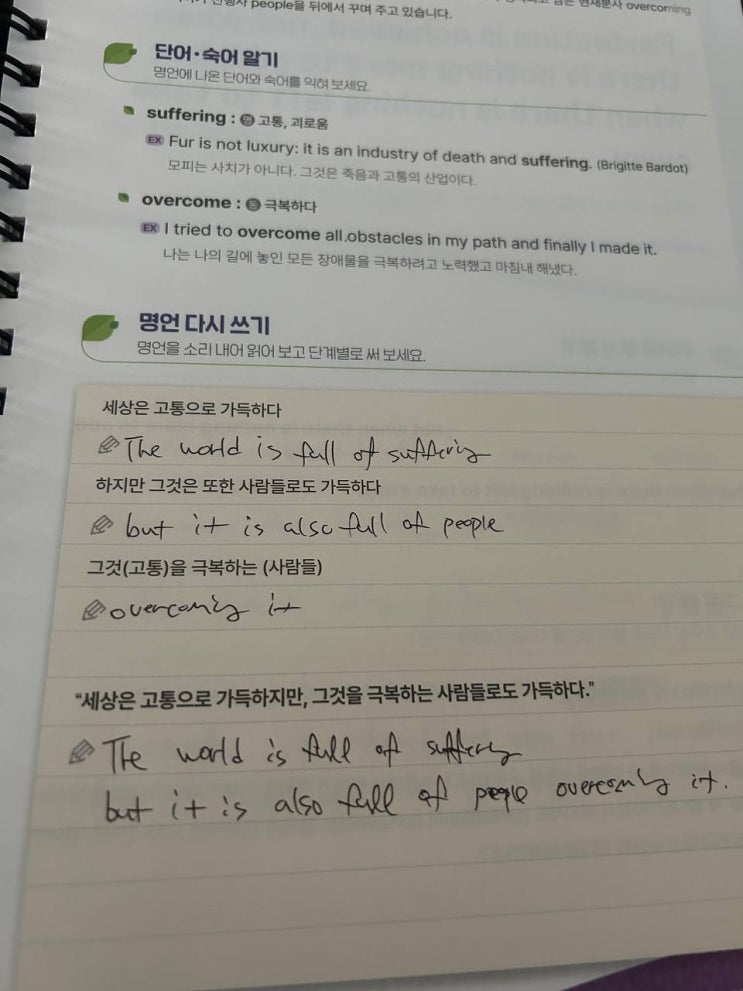 people을 뒤에서 꾸며 주고 있습니다.
현재분사 overcoming
단어·숙어 알기
명언에 나온 단어와 숙어를 익혀 보세요.
suffering : 명 고통, 괴로움
EX Fur is not luxury: it is an industry of death and suffering. (Brigitte Bardot)
모피는 사치가 아니다. 그것은 죽음과 고통의 산업이다.
overcome : 동 극복하다
EX I tried to overcome all obstacles in my path and finally I made it.
나는 나의 길에 놓인 모든 장애물을 극복하려고 노력했고 마침내 해냈다.
명언 다시 쓰기
명언을 소리 내어 읽어 보고 단계별로 써 보세요.
세상은 고통으로 가득하다
The world is full of suffering
하지만 그것은 또한 사람들로도 가득하다
but it is also full of people
그것(고통)을 극복하는 (사람들)
overcoming it
“세상은 고통으로 가득하지만, 그것을 극복하는 사람들로도 가득하다.”
The world is full of suffering
but it is also full of people overcoming it.